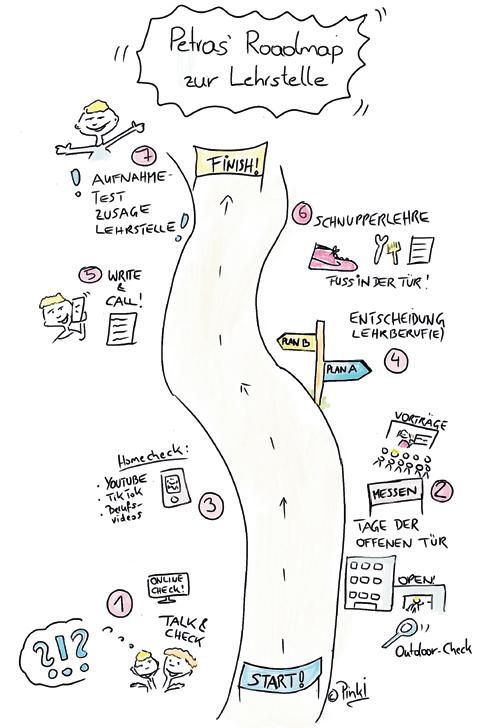 Petras' Roadmap
zur Lehrstelle
FINISH!
7
AUFNAHME-
TEST
ZUSAGE
LEHRSTELLE!
6
SCHNUPPERLEHRE
FUSS IN DER TÜR!
5
WRITE
&
CALL!
ENTSCHEIDUNG
LEHRBERUF(E)
4
PLAN B
PLAN A
Homecheck:
• YOUTUBE
• TikTok
• Berufs-
videos
3
VORTRÄGE
MESSEN
2
TAGE DER
OFFENEN TÜR
OPEN!
Outdoor-Check
1
ONLINE
CHECK!
TALK &
CHECK
?!?
START!
© Pinki